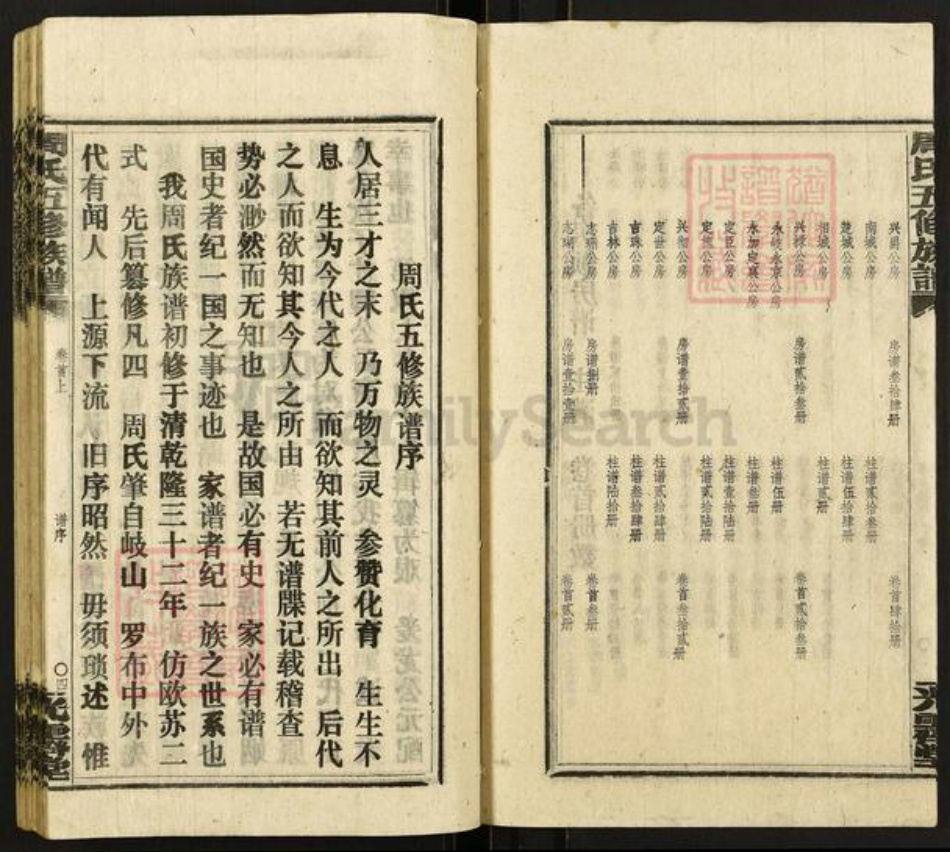 周氏五修族谱
兴爵公房 房谱叁拾肆册 卷首肆拾册
南城公房 柱谱贰拾叁册
楚城公房 柱谱伍拾肆册
相城公房 柱谱贰册
兴禄公房 房谱贰拾叁册 卷首贰拾叁册
永岐永京公房 柱谱伍册
永加定奠公房 柱谱叁册
定臣公房 柱谱壹拾陆册
公房 柱谱贰拾陆册
兴彻公房 房谱壹拾贰册 卷首叁拾贰册
定世公房 柱谱贰拾肆册
吉珠公房 柱谱叁拾肆册
吉林公房 柱谱陆拾册
公房 房谱捌册 卷首叁册
公房 房谱壹拾壹册 卷首贰册
周氏五修族谱序
人居三才之末 乃万物之灵 参赞化育 生生不
息 生为今代之人 而欲知其前人之所出 后代
之人而欲知其今人之所由 若无谱牒记载稽查
势必渺然而无知也 是故国必有史 家必有谱
国史者纪一国之事迹也 家谱者纪一族之世系也
我周氏族谱初修于清乾隆三十二年 仿欧苏二
式 先后纂修凡四 周氏肇自岐山 罗布中外
代有闻人 上源下流 旧序昭然 毋须琐述 惟
周氏五修族谱
卷首上
谱序
〇四
FamilySearch